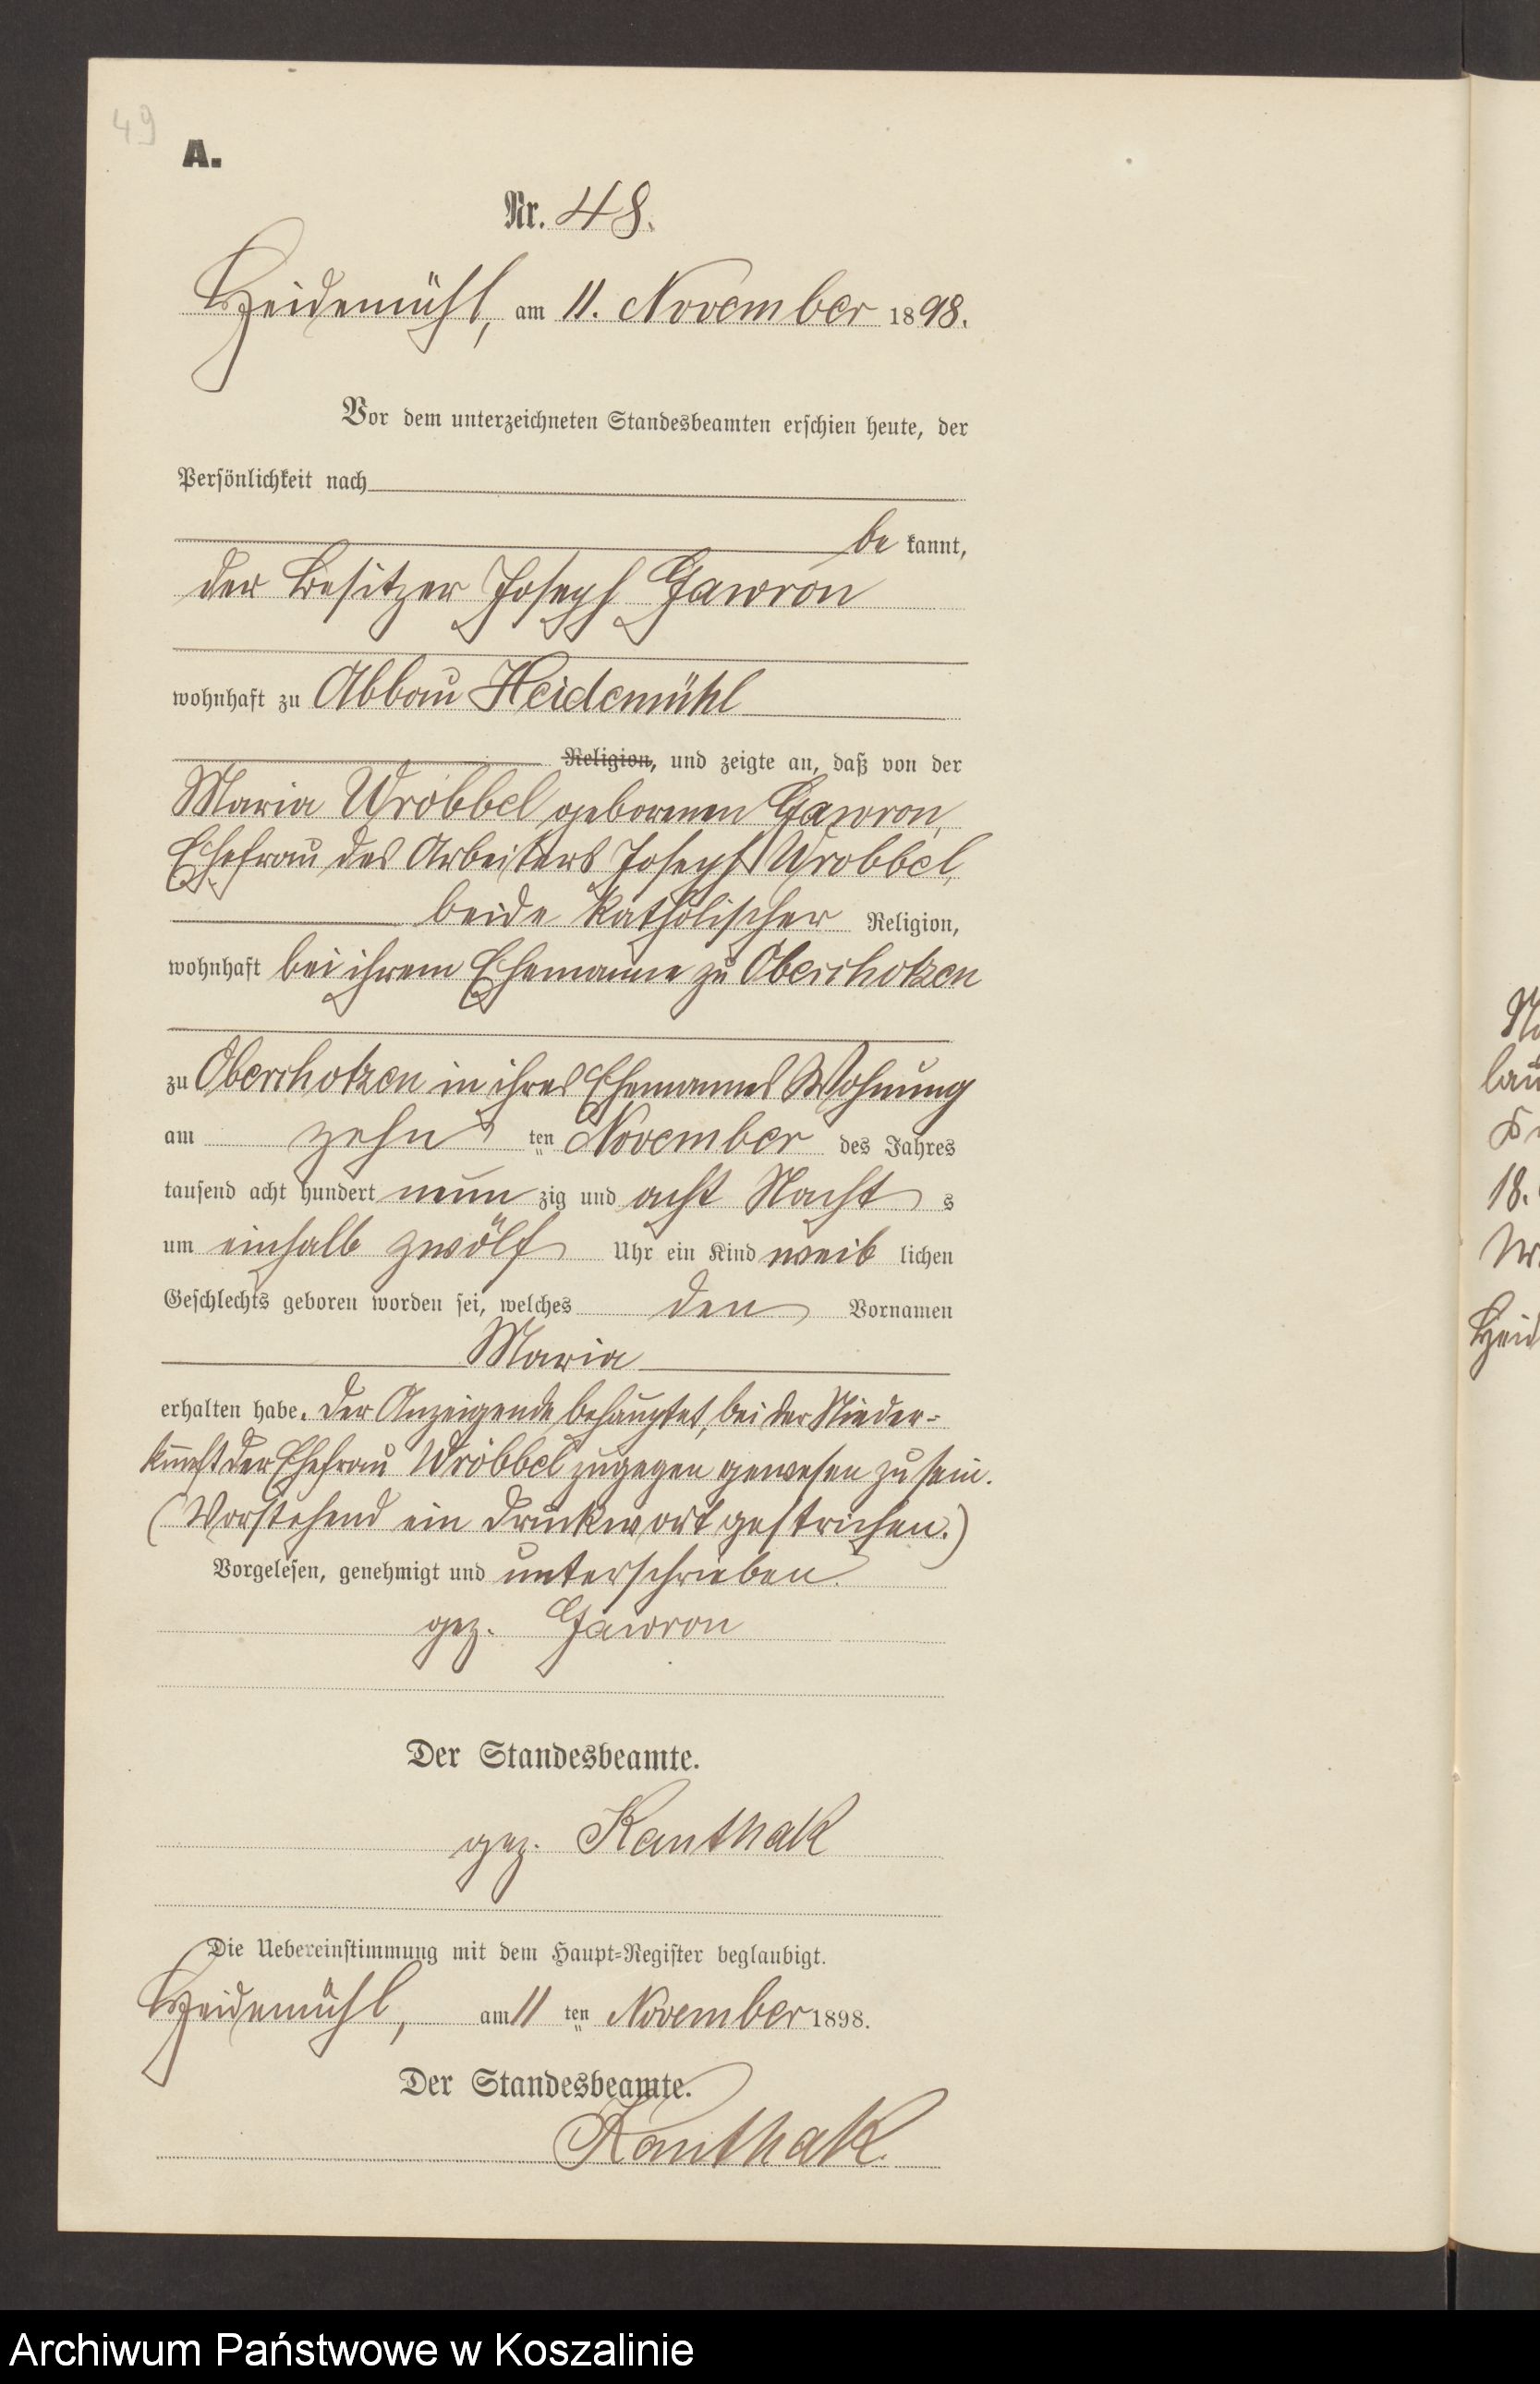 49
A.
Nr. 48.
Heidemühl, am 11. November 1898.
Vor dem unterzeichneten Standesbeamten erschien heute, der
Persönlichkeit nach
be kannt,
der Besitzer Joseph Gawron
wohnhaft zu Abbau Heidemühl
Religion, und zeigte an, daß von der
Maria Wrobbel geborenen Gawron,
Ehefrau des Arbeiters Joseph Wrobbel,
beide katholischer Religion,
wohnhaft bei ihrem Ehemanne zu Oberchotzen
zu Oberchotzen in ihres Ehemannes Wohnung
am zehn ten November des Jahres
tausend acht hundert neun zig und acht Nacht s
um einhalb zwölf Uhr ein Kind weib lichen
Geschlechts geboren worden sei, welches den Vornamen
Maria
erhalten habe. Der Anzeigende behauptet, bei der Nieder-
kunft der Ehefrau Wrobbel zugegen gewesen zu sein.
(Vorstehend ein Druckwort gestrichen.)
Vorgelesen, genehmigt und unterschrieben.
gez. Gawron
Der Standesbeamte.
gez. Kanthak
Die Uebereinstimmung mit dem Haupt-Register beglaubigt.
Heidemühl, am 11 ten November 1898.
Der Standesbeamte.
Kanthak.
lau
18.
Heid
Archiwum Państwowe w Koszalinie